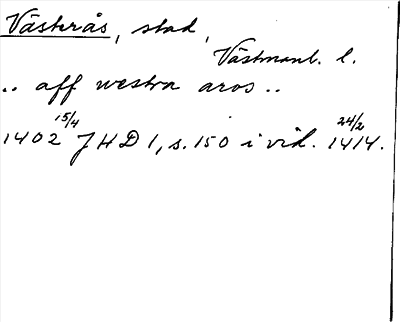 Västerås, stad,
Västmanl. l.
.. aff westra aros ..
1402 15/4 JHD 1, s. 150 i vid. 24/2 1414.